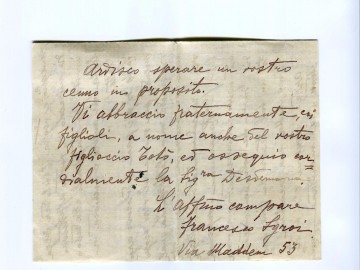 Ardisco sperare un vostro
cenno in proposito.
Vi abbraccio fraternamente, coi
figlioli, a nome anche del vostro
figlioccio Totò, ed ossequio cor-
dialmente la Sigra
L'affmo compare
Francesco
Via Maddem 53